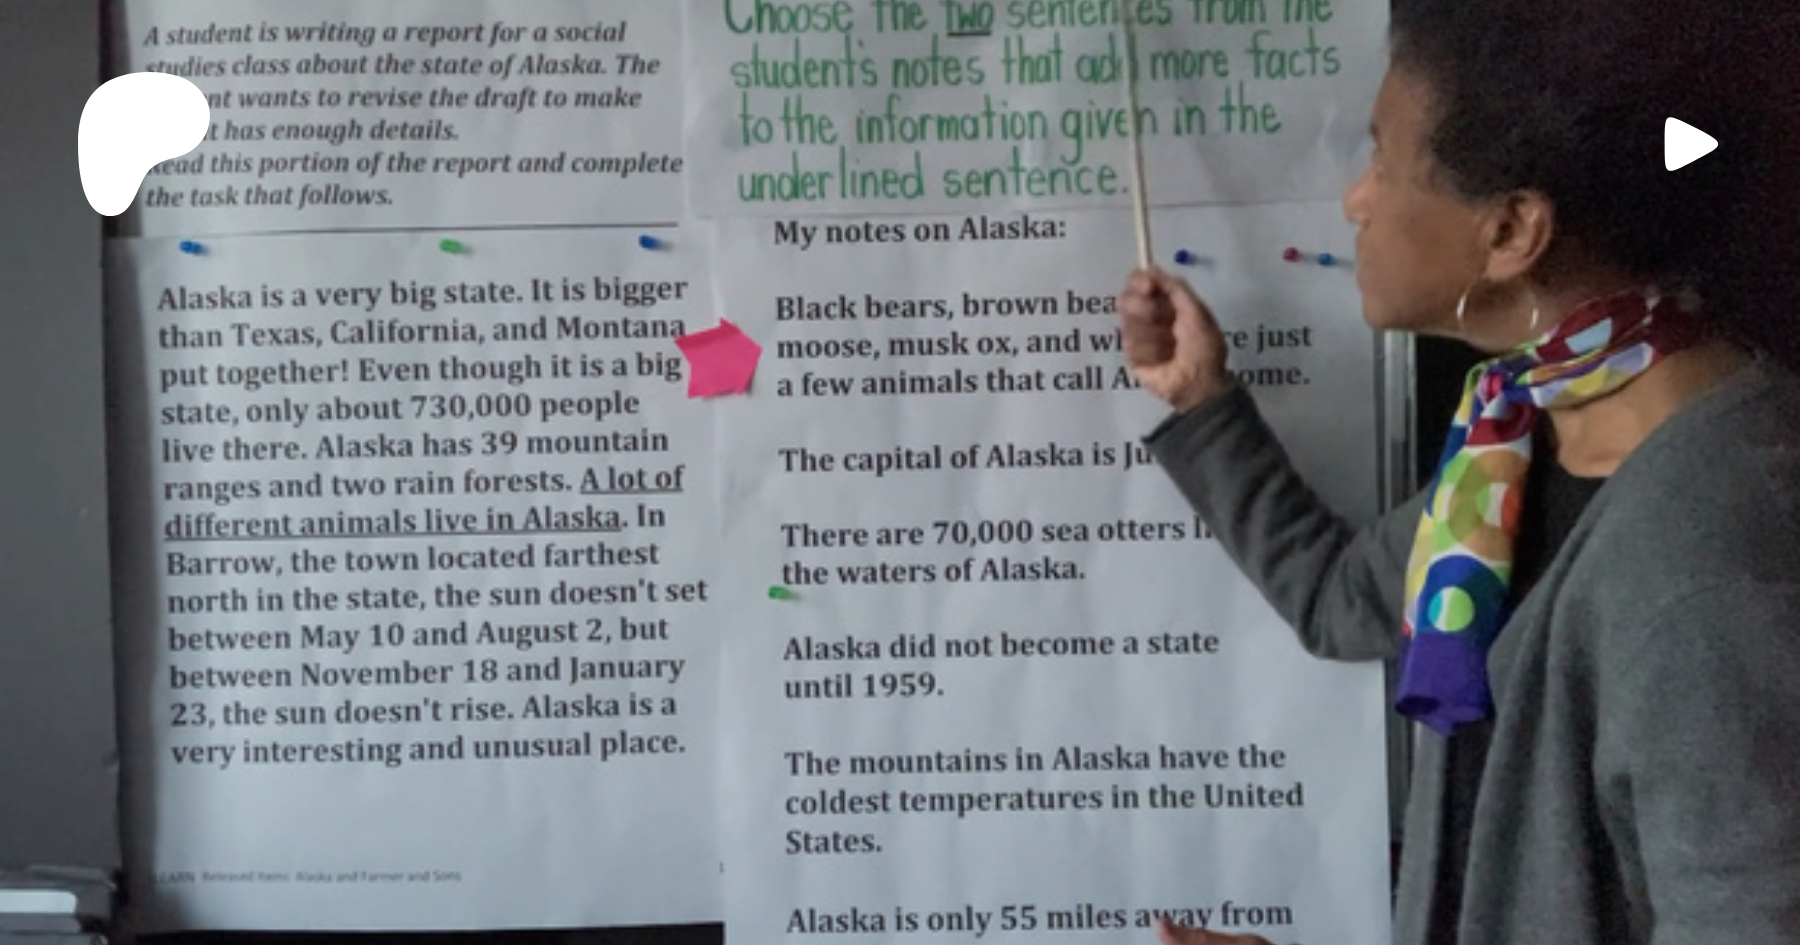 A student is writing a report for a social
studies class about the state of Alaska. The
wants to revise the draft to make
has enough details.
Read this portion of the report and complete
the task that follows.
Alaska is a very big state. It is bigger
than Texas, California, and Montana
put together! Even though it is a big
state, only about 730,000 people
live there. Alaska has 39 mountain
ranges and two rain forests. A lot of
different animals live in Alaska. In
Barrow, the town located farthest
north in the state, the sun doesn't set
between May 10 and August 2, but
between November 18 and January
23, the sun doesn't rise. Alaska is a
very interesting and unusual place.
Released Items Alaska and Farmer and Sons
Choose the two sentences from the
student's notes that add more facts
to the information given in the
underlined sentence.
My notes on Alaska:
Black bears, brown
moose, musk ox, and just
a few animals that call
The capital of Alaska is
There are 70,000 sea otters
the waters of Alaska.
Alaska did not become a state
until 1959.
The mountains in Alaska have the
coldest temperatures in the United
States.
Alaska is only 55 miles away from